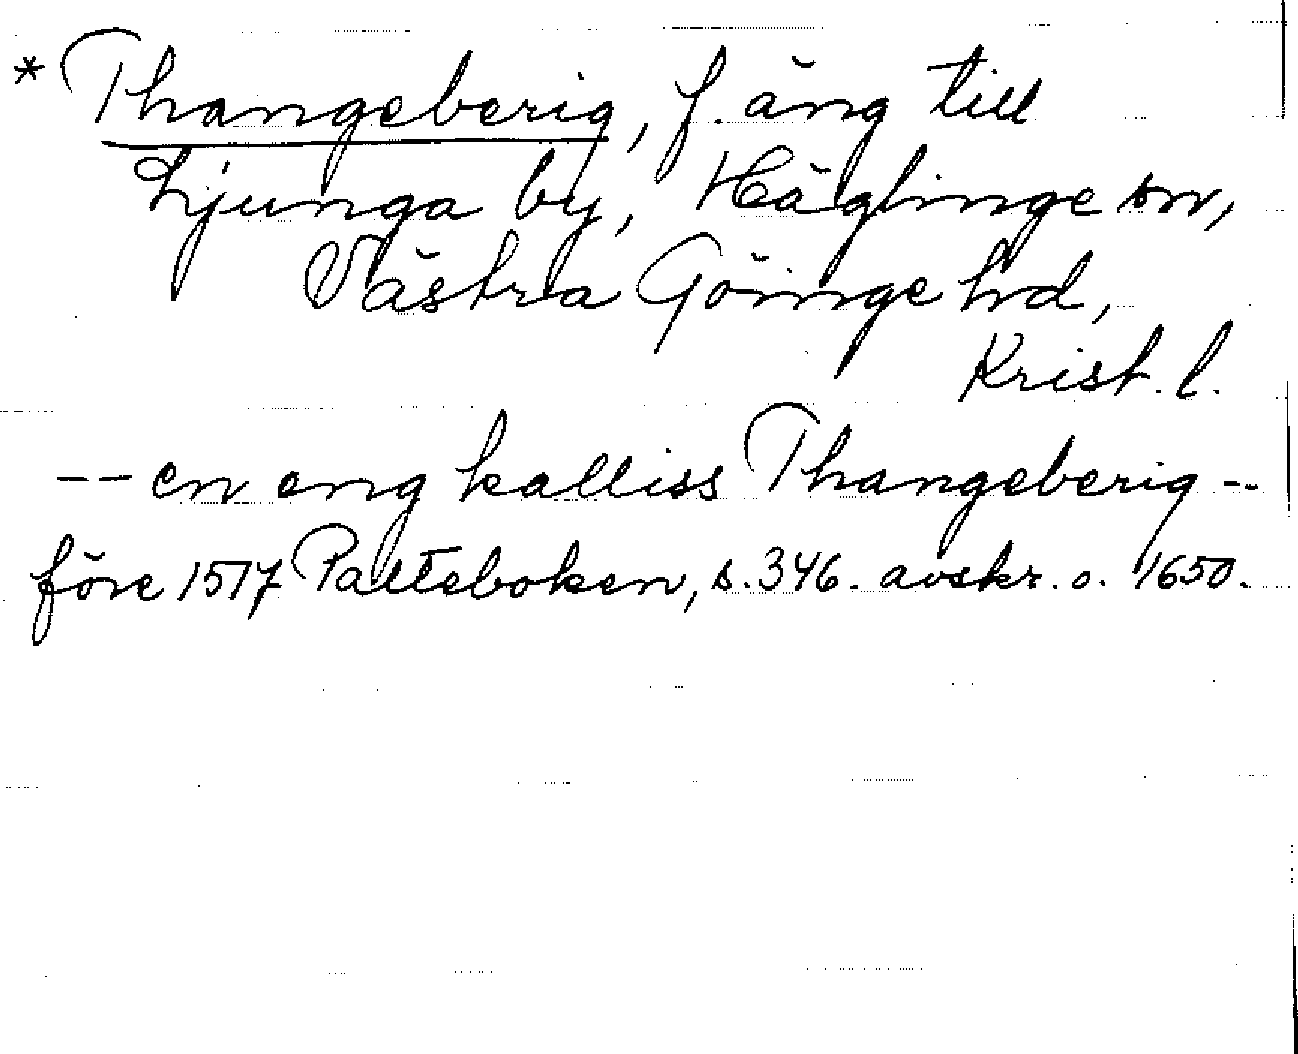 * Thangeberig, f. äng till
Ljunga by, Häglinge sn,
Västra Göinge hd,
Krist. l.
-- en eng kalliss Thangeberig --
före 1517 Palteboken, s. 346. avskr. o. 1650.